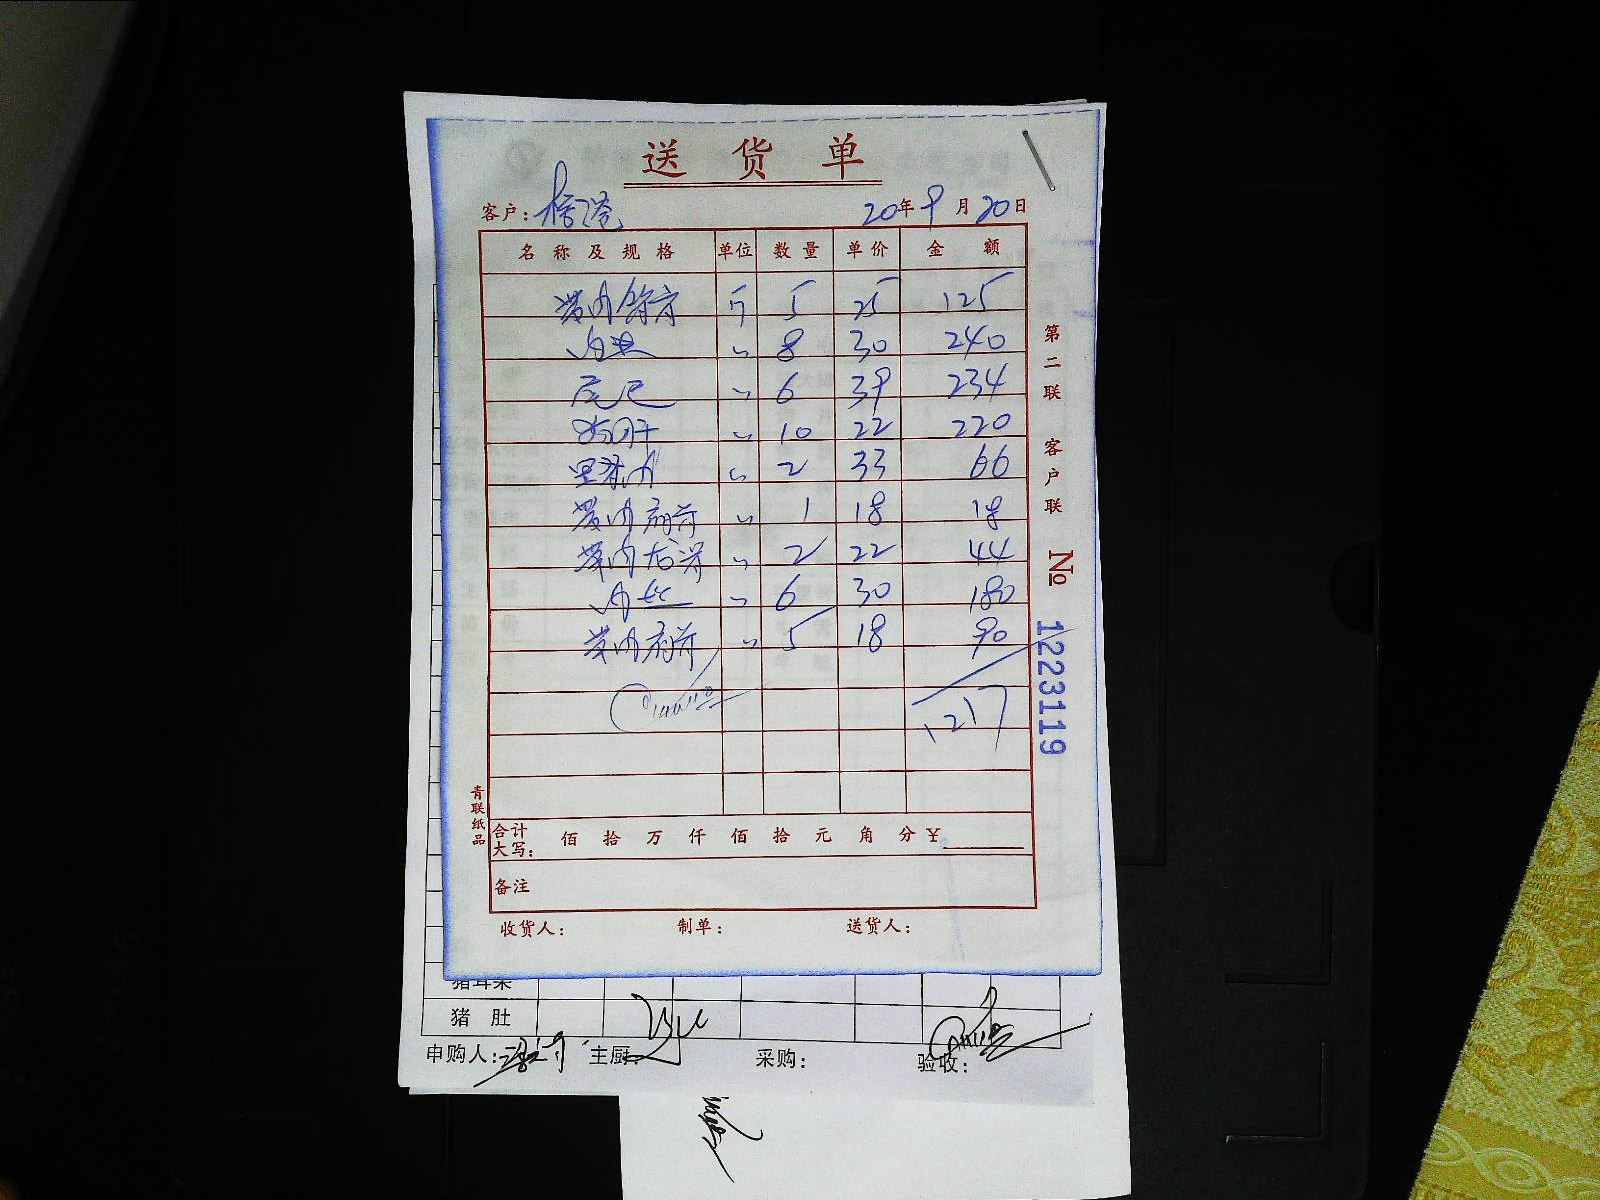 送货单
客户: 20年9月20日
名称及规格 单位 数量 单价 金额
带肉 斤 5 25 125
肉 〃 8 30 240
尾巴 〃 6 39 234
肝 〃 10 22 220
里脊肉 〃 2 33 66
带肉前骨 〃 1 18 18
带肉后骨 〃 2 22 44
肉丝 〃 6 30 180
带肉前骨 〃 5 18 90
1217
合计大写: 佰 拾 万 仟 佰 拾 元 角 分 ¥
备注
收货人: 制单: 送货人:
第二联 客户联 No 1223119
青联纸品
猪耳朵
猪肚
申购人: 主厨: 采购: 验收: